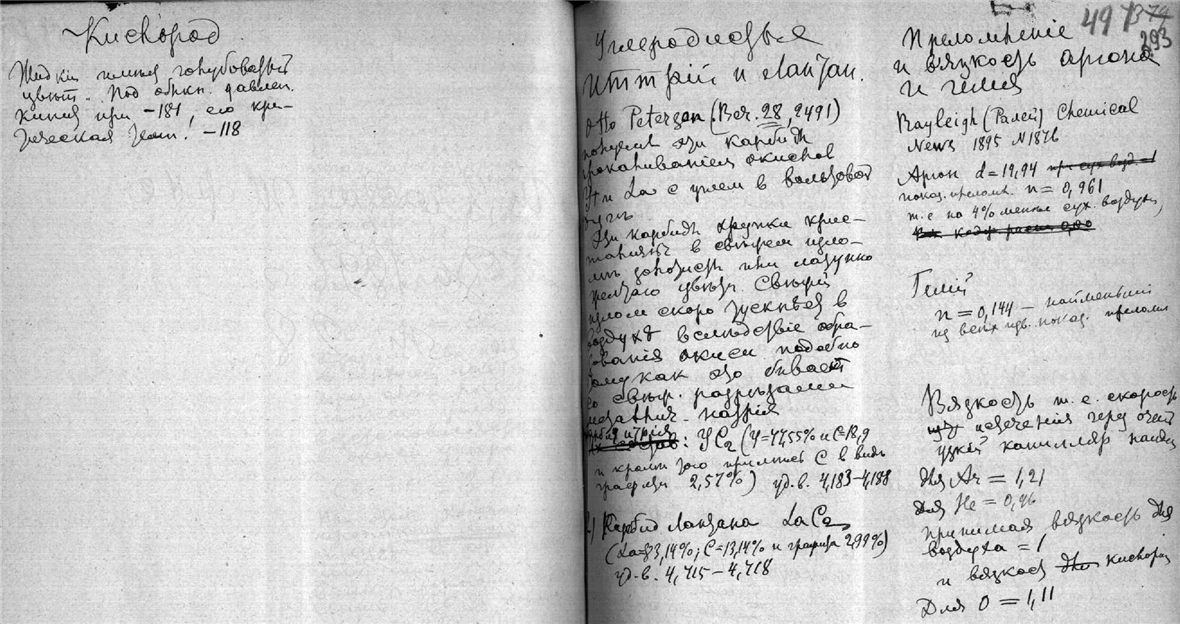 Кислород
Жидкий имеет голубоватый
цвет. Под обыкн. давлен.
кипит при -181, его кри-
тическая темп. -118
Углеродистые
иттрий и лантан.
Otto Peterson (Ber. 28, 2491)
получил эти карбиды
прокаливанием окислов
Y и La с углем в вольтовой
дуге
Эти карбиды хрупки крис-
талличны в свежем изло-
ме золотисто или латунно
желтаго цвета. Свежий
излом скоро тускнеет в
воздухе вследствие обра-
зования окиси подобно
тому как это бывает
со свеж. разрезами
металлич. натрия
Карбид иттрия: YC2 (Y=77,55% и C=18,9
и кроме того примесь C в виде
графита 2,57%) уд. в. 4,183-4,188
2) Карбид Лантана LaC2
(La=83,14%; C=13,14% и графита 2,99%)
уд. в. 4,715-4,718
497 374
293
Преломление
и вязкость аргона
и гелия
Rayleigh (Ралей) Chemical
News 1895 N 1876
Аргон d=19,94
показ. преломл. n=0,961
т.е. на 4% меньше сух. воздуха,
Гелий
n=0,144 – наименьший
из всех изв. показ. преломл
Вязкость т.е. скорость
истечения через очень
узкий капилляр найден
для Ar = 1,21
Для He = 0,96
принимая вязкость для
воздуха = 1
и вязкость кислорода
Для O = 1,11